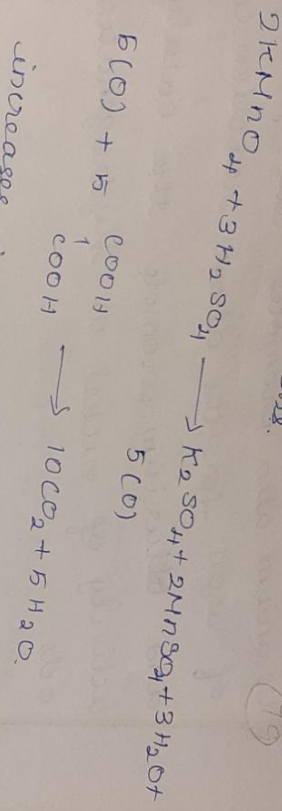 2KMnO4 + 3H2SO4 ⟶ K2SO4 + 2MnSO4 + 3H2O +
5(O)
5(O) + 5 COOH
COOH ⟶ 10CO2 + 5H2O.
increases